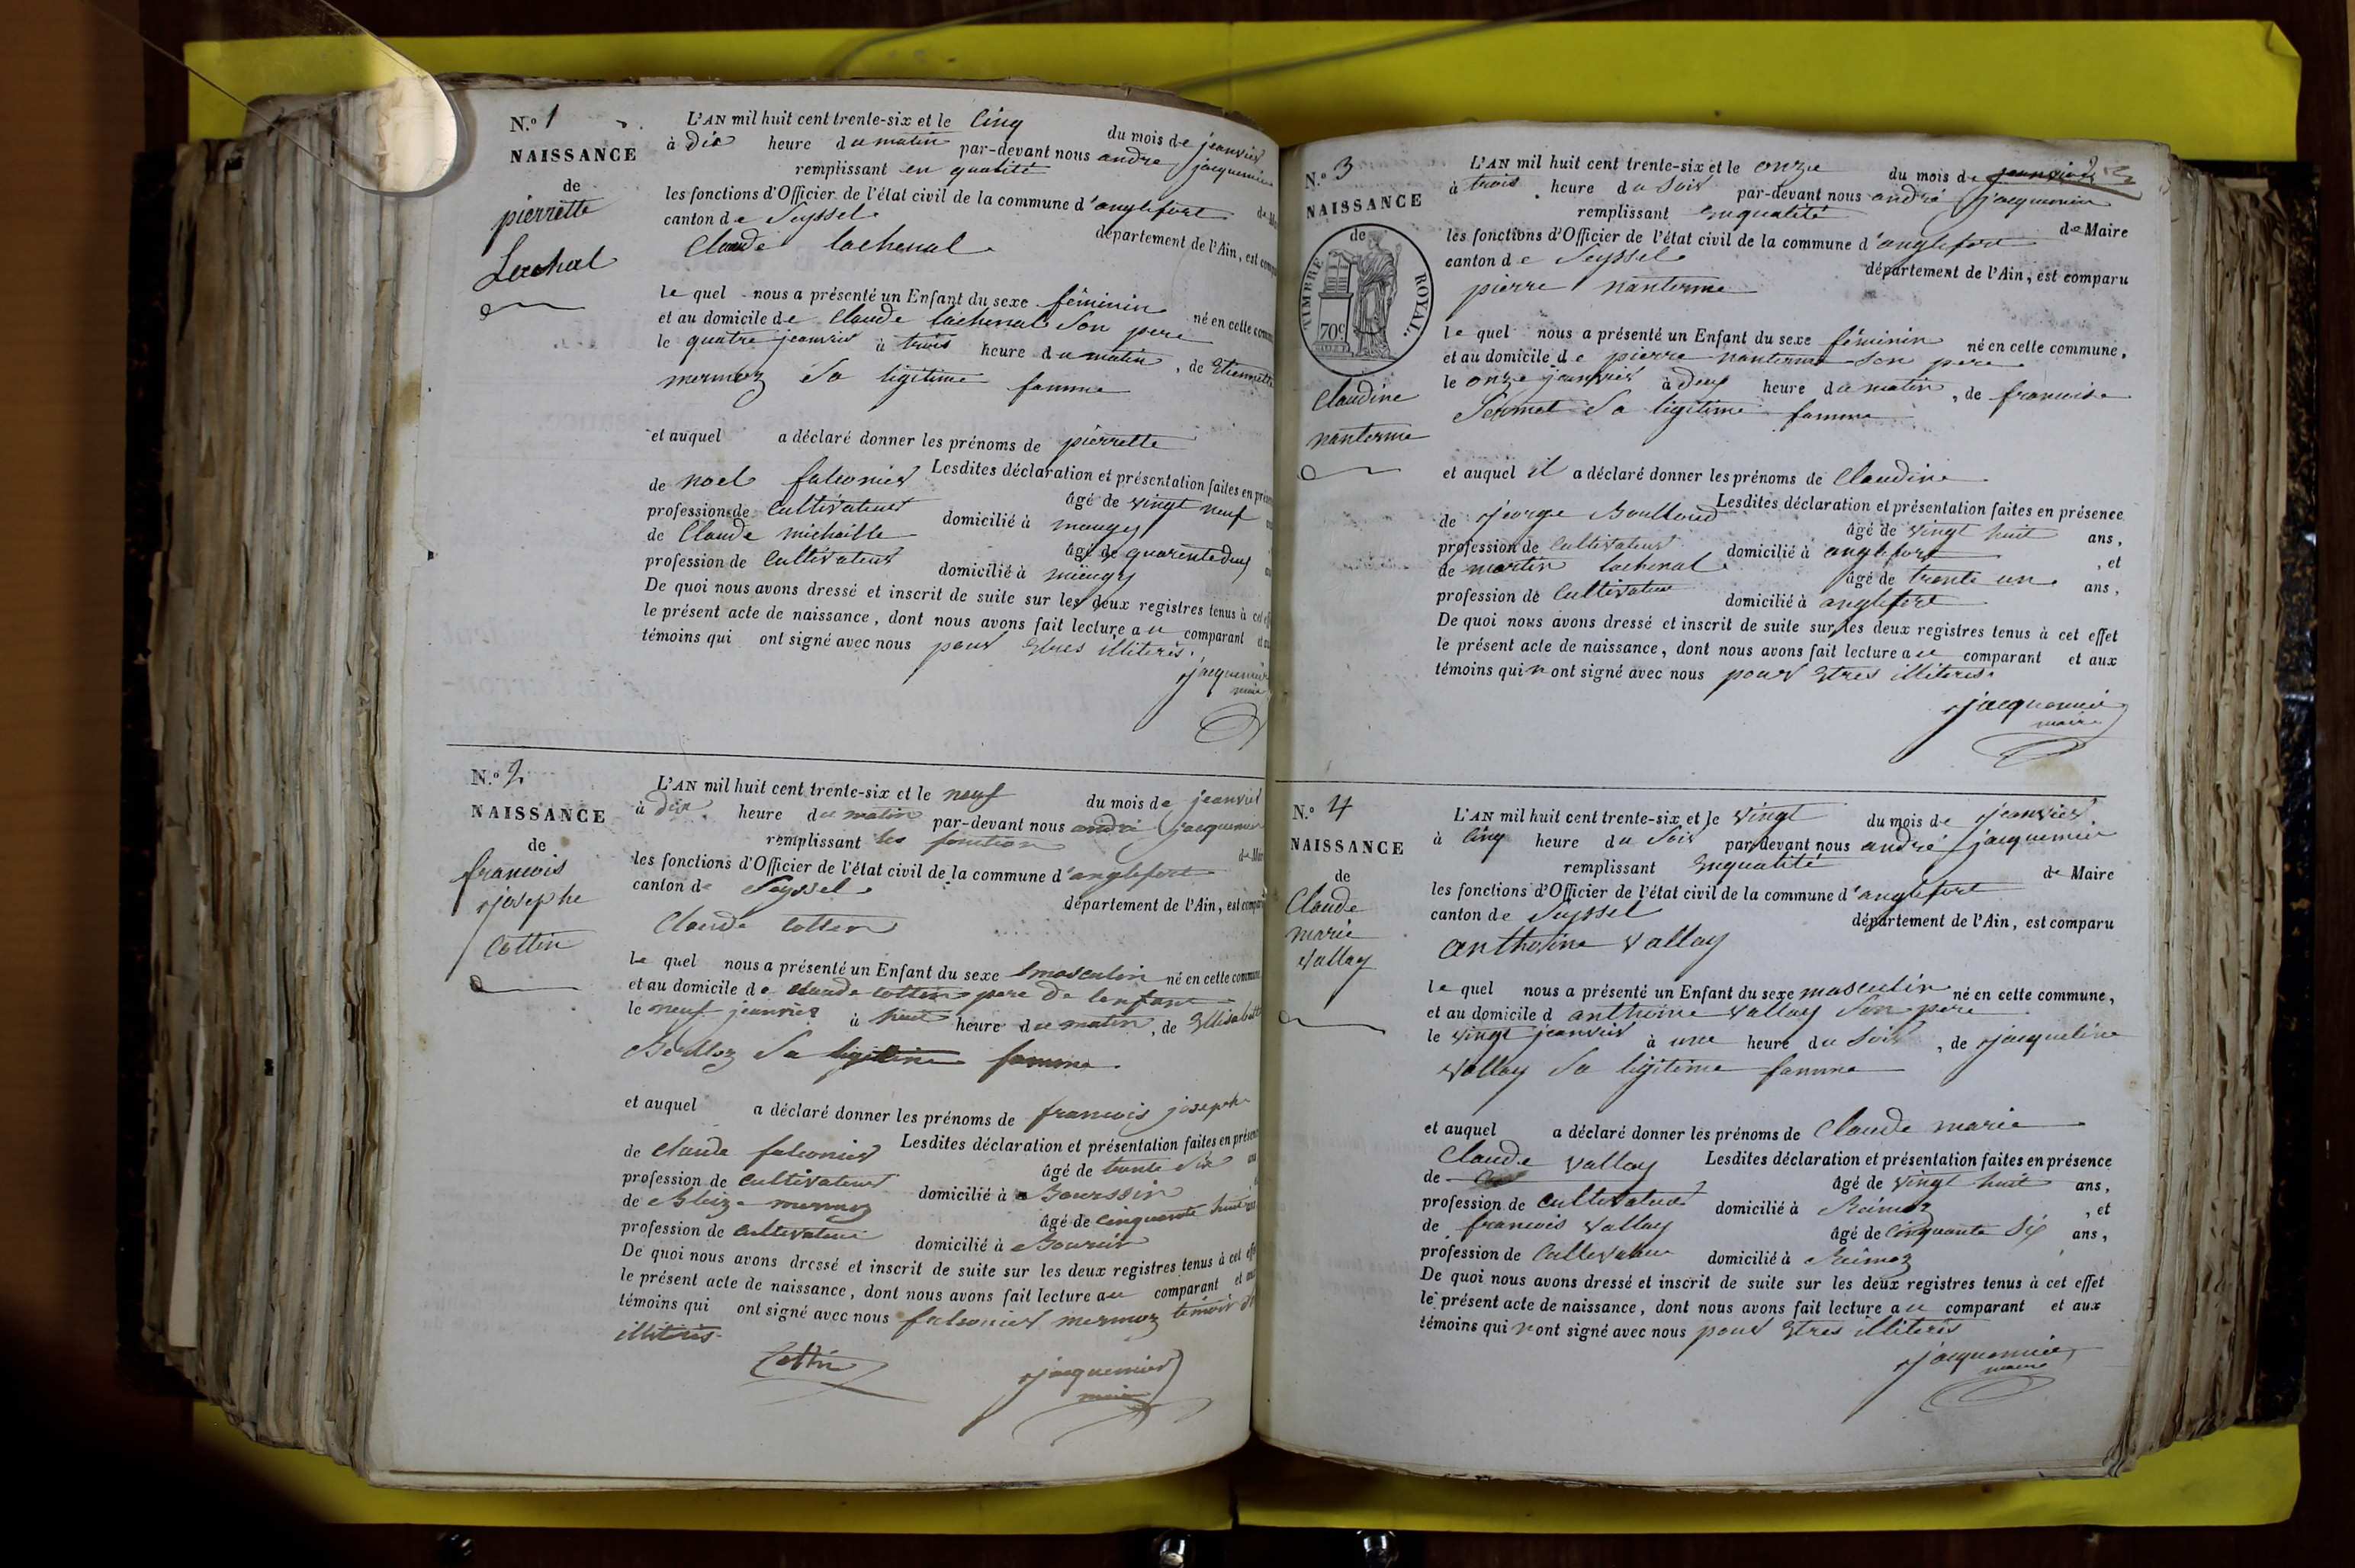 N.o 1
NAISSANCE
de
pierrette
Lachal
L'AN mil huit cent trente-six et le Cinq du mois de jeanvier
à Dix heure du matin par-devant nous andre jacquemier
remplissant en qualité de
les fonctions d'Officier de l'état civil de la commune d'anglefort
canton de Seyssel département de l'Ain, est
Claude lachenal
le quel nous a présenté un Enfant du sexe féminin né en cette
et au domicile de Claude lachenal Son pere
le quatre jeanvier à trois heure du matin, de Etiennette
mermoz Sa ligitime famme
et auquel a déclaré donner les prénoms de pierrette
Lesdites déclaration et présentation faites en
de noel falconier âgé de vingt neuf
profession de Cultivateur domicilié à
de Claude michaille âgé de quarente deux
profession de Cultivateur domicilié à
De quoi nous avons dressé et inscrit de suite sur les deux registres tenus à cet
le présent acte de naissance, dont nous avons fait lecture au comparant
témoins qui ont signé avec nous pour Etres illiterés.
jacquemier
maire
N.o 2
NAISSANCE
de
francois
josephe
Cottin
L'AN mil huit cent trente-six et le neuf du mois de jeanvier
à dix heure du matin par-devant nous andré jacquemier
remplissant les fonction de
les fonctions d'Officier de l'état civil de la commune d'anglefort
canton de Seyssel département de l'Ain, est
Claude Cotten
le quel nous a présenté un Enfant du sexe masculin né en cette commune
et au domicile de Claude Cottin pere de lenfant
le neuf jeanvier à huit heure du matin, de Ellisabette
Berlioz Sa ligitime famme
et auquel a déclaré donner les prénoms de francois joseph
Lesdites déclaration et présentation faites en
de Claude falconier âgé de trente Six
profession de Cultivateur domicilié à Bourssin
de Bleize mermoz âgé de Cinquente huit
profession de Cultivateur domicilié à Boursin
De quoi nous avons dressé et inscrit de suite sur les deux registres tenus à cet
le présent acte de naissance, dont nous avons fait lecture au comparant et
témoins qui ont signé avec nous falconier mermoz temoin
illiterés.
Cottin jacquemier
maire
N.o 3
NAISSANCE
de
TIMBRE ROYAL.
70c
Claudine
nanterme
L'AN mil huit cent trente-six et le onze du mois de jeanvier
à trois heure du Soir par-devant nous andré jacquemier
remplissant Enqualité de Maire
les fonctions d'Officier de l'état civil de la commune d'anglefort
canton de Seyssel département de l'Ain, est comparu
pierre nanterme
le quel nous a présenté un Enfant du sexe féminin né en cette commune,
et au domicile de pierre nanterme Son pere
le onze jeanvier à Deux heure du matin, de francoise
Sa ligitime famme
et auquel il a déclaré donner les prénoms de Claudine
Lesdites déclaration et présentation faites en présence
de jeorge Boulloud âgé de vingt huit ans,
profession de Cultivateur domicilié à anglefort, et
de martin lachenal âgé de trente un ans,
profession de Cultivateur domicilié à anglefort
De quoi nous avons dressé et inscrit de suite sur les deux registres tenus à cet effet
le présent acte de naissance, dont nous avons fait lecture au comparant et aux
témoins qui n ont signé avec nous pour Etres illiterés.
jacquemier
maire
N.o 4
NAISSANCE
de
Claude
marie
Vallay
L'AN mil huit cent trente-six et le Vingt du mois de jeanvier.
à Cinq heure du Soir par-devant nous andré jacquemier
remplissant Enqualité de Maire
les fonctions d'Officier de l'état civil de la commune d'anglefort
canton de Seyssel département de l'Ain, est comparu
anthoine Vallay
le quel nous a présenté un Enfant du sexe masculin né en cette commune,
et au domicile d anthoine Vallay Son pere
le vingt jeanvier à une heure du Soir, de jacqueline
Vallay Sa ligitime famme
et auquel a déclaré donner les prénoms de Claude marie
Claude Vallay Lesdites déclaration et présentation faites en présence
de âgé de vingt huit ans,
profession de Cultivateur domicilié à, et
de francois Vallay âgé de Cinquante Six ans,
profession de Cultivateur domicilié à
De quoi nous avons dressé et inscrit de suite sur les deux registres tenus à cet effet
le présent acte de naissance, dont nous avons fait lecture au comparant et aux
témoins qui n ont signé avec nous pour Etres illiterés
jacquemier
maire